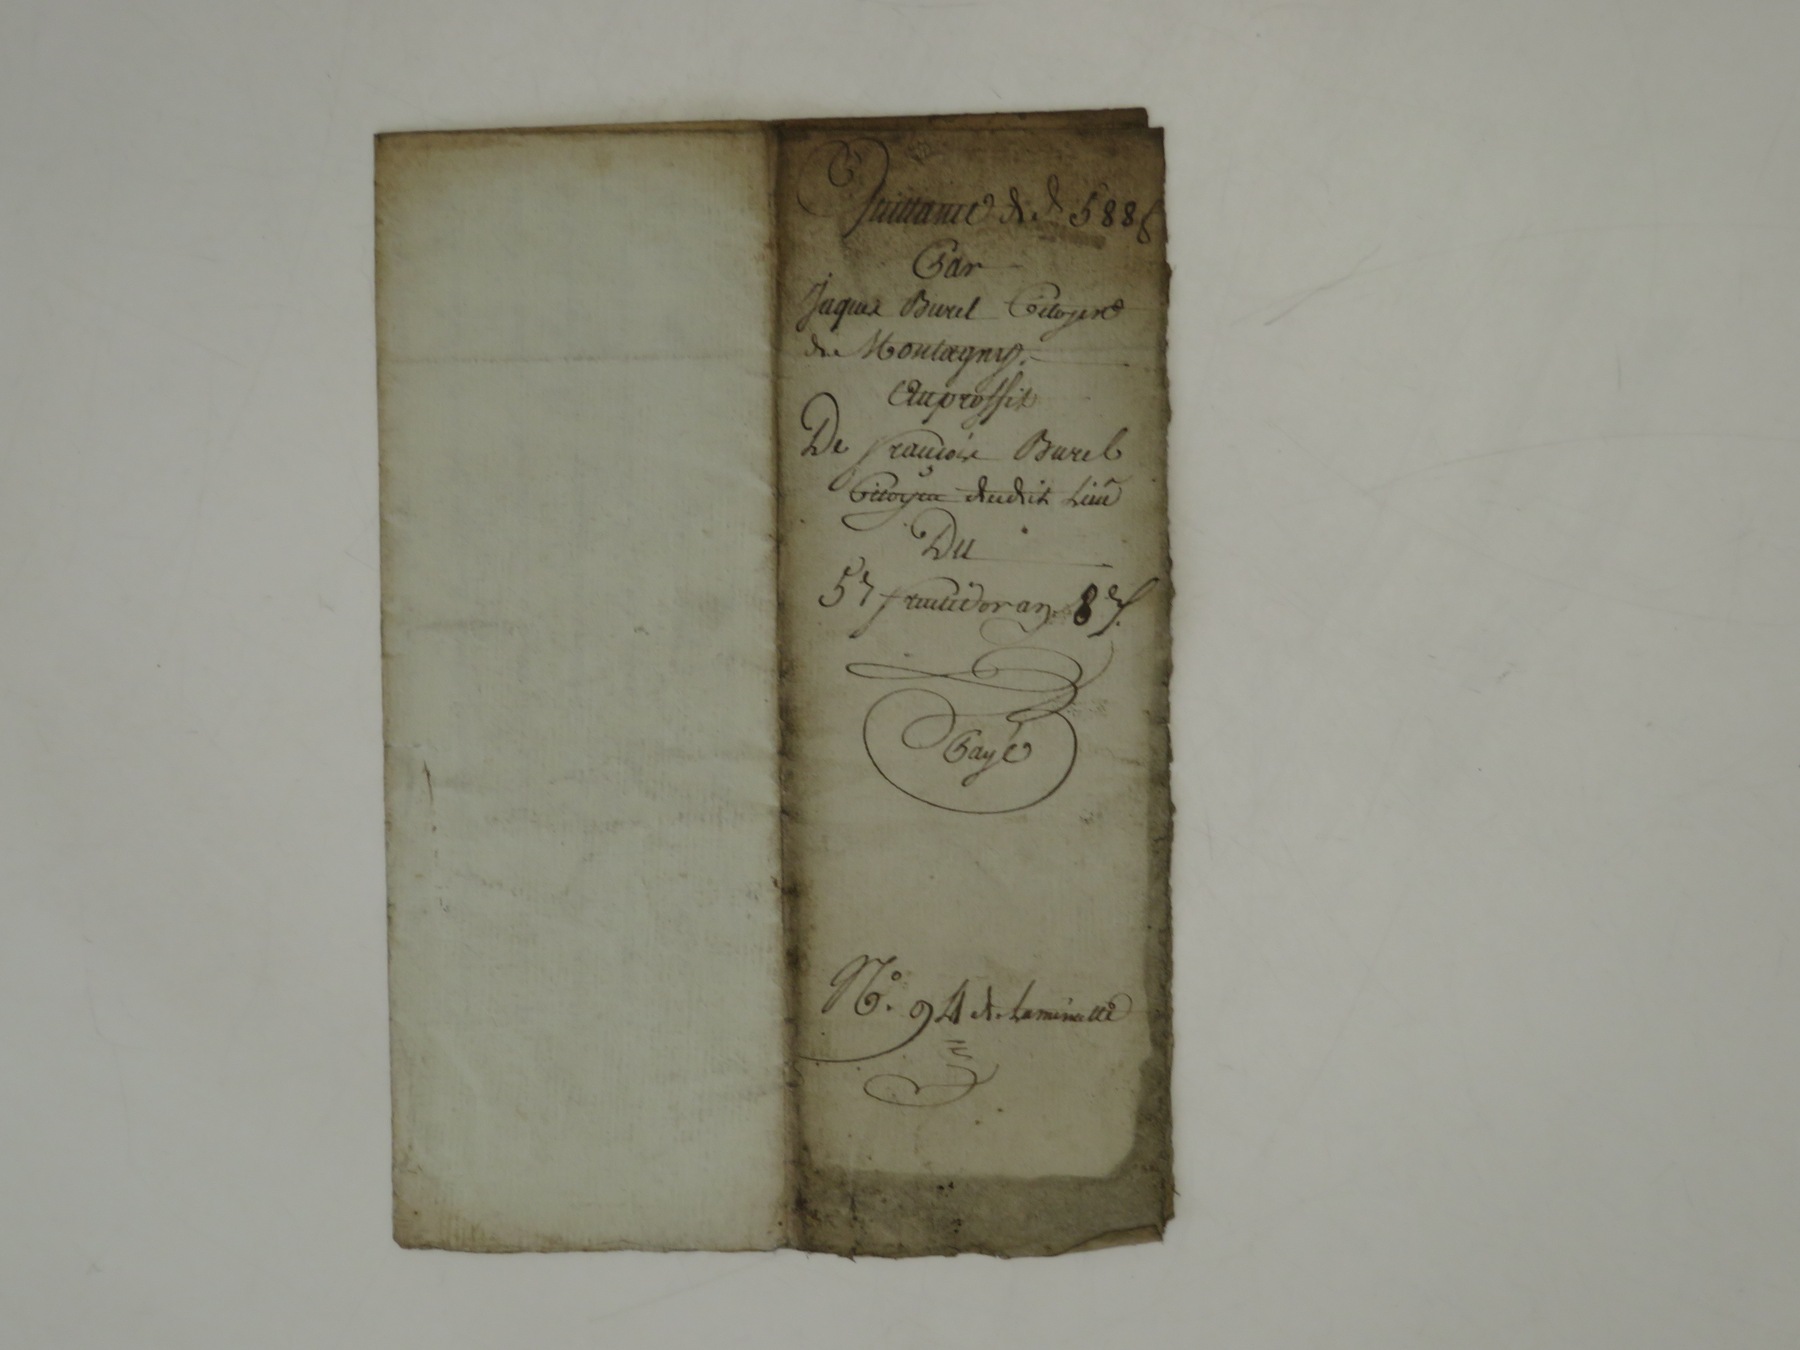 Quittance de d 588 f
Par
Jaques Burel Citoyen
de Montagny.
Auproffit
De francois Burel
Citoyen dudit Lieu
Du
5 fructidor an 8e f.
Payé
No. 94 de Laminutte